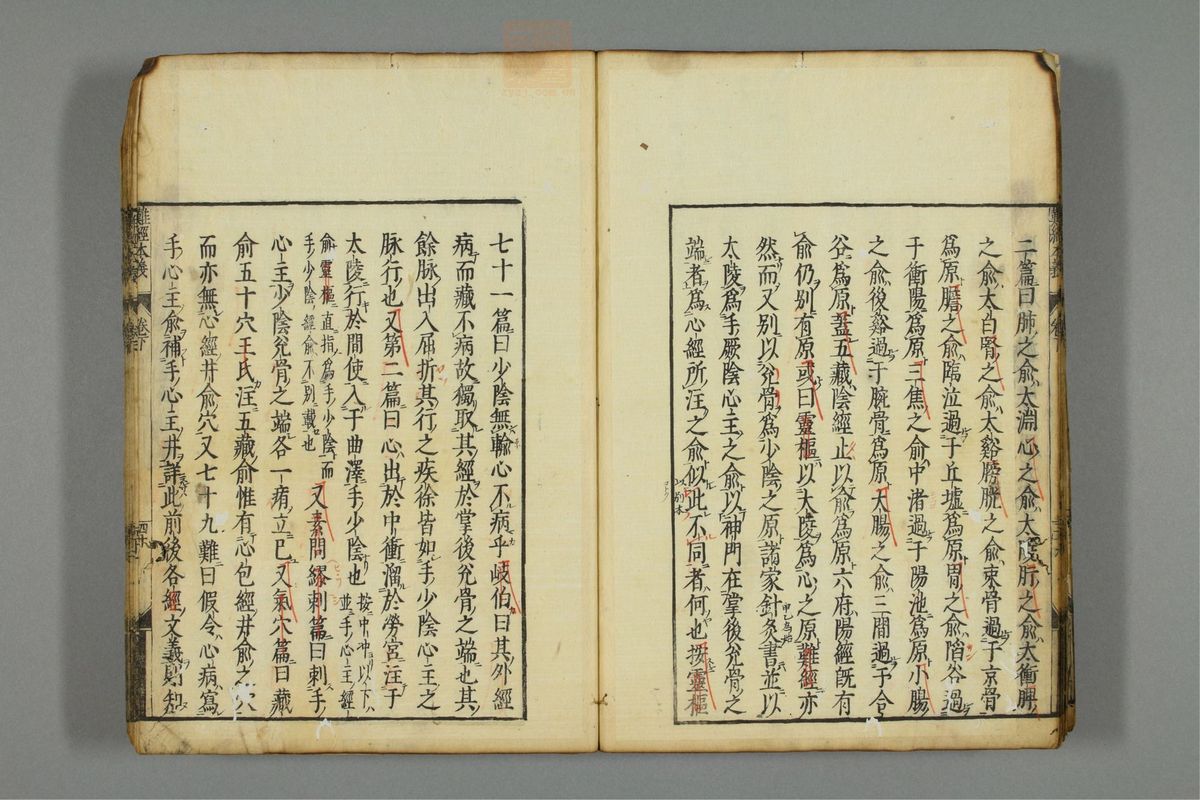 二篇曰肺之兪太淵心之兪大陵肝之兪太衝脾
之兪太白腎之兪太谿膀胱之兪束骨過于京骨
爲原膽之兪臨泣過于丘墟爲原胃之兪陷谷過
于衝陽爲原三焦之兪中渚過于陽池爲原小腸
之兪後谿過于腕骨爲原大腸之兪三間過于合
谷爲原蓋五藏陰經止以兪爲原六府陽經既有
兪仍別有原或曰靈樞以大陵爲心之原難經亦
然而又別以兊骨爲少陰之原諸家針灸書並以
太陵爲手厥陰心主之兪以神門在掌後兊骨之
端者爲心經所注之兪似此不同者何也按靈樞
七十一篇曰少陰無輸心不病乎岐伯曰其外經
病而藏不病故獨取其經於掌後兊骨之端也其
餘脉出入屈折其行之疾徐皆如手少陰心主之
脉行也又第二篇曰心出於中衝溜於勞宮注于
太陵行於間使入于曲澤手少陰也按中冲以下
並手心主經
兪靈樞直指爲手少陰而
手少陰經兪不別載也
又素問繆刺篇曰刺手
心主少陰兊骨之端各一痏立已又氣穴篇曰藏
兪五十穴王氏注五藏兪惟有心包經井兪之穴
而亦無心經井兪穴又七十九難曰假令心病寫
手心主兪補手心主井詳此前後各經文義則知
難經本義
卷下